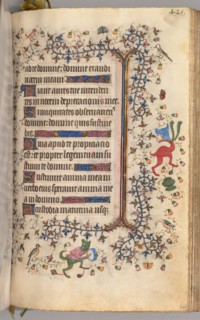 ad te domine: domine exaudi
vocem meam
Fiant aures tue intenden
tes in vocem deprecationis mee.
Si iniquitates observaveris
domine: domine quis sustine
bit.
Quia apud te propiciatio
est: et propter legem tuam su
stinui te domine.
Sustinuit anima mea in
verbo eius speravit anima me
a in domino.
A custodia matutina usq;